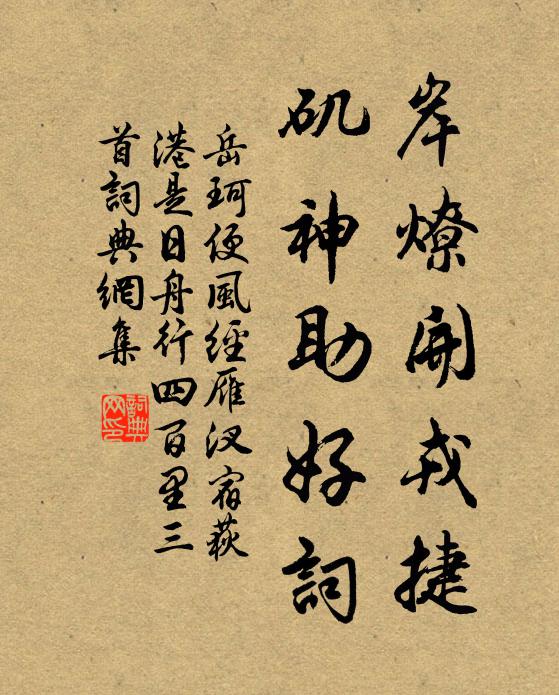 岸燎開戎捷
矶神助好詞
岳珂便風經雁汊宿荻
港是日舟行四百里三
首詞典網集
詞典
网印